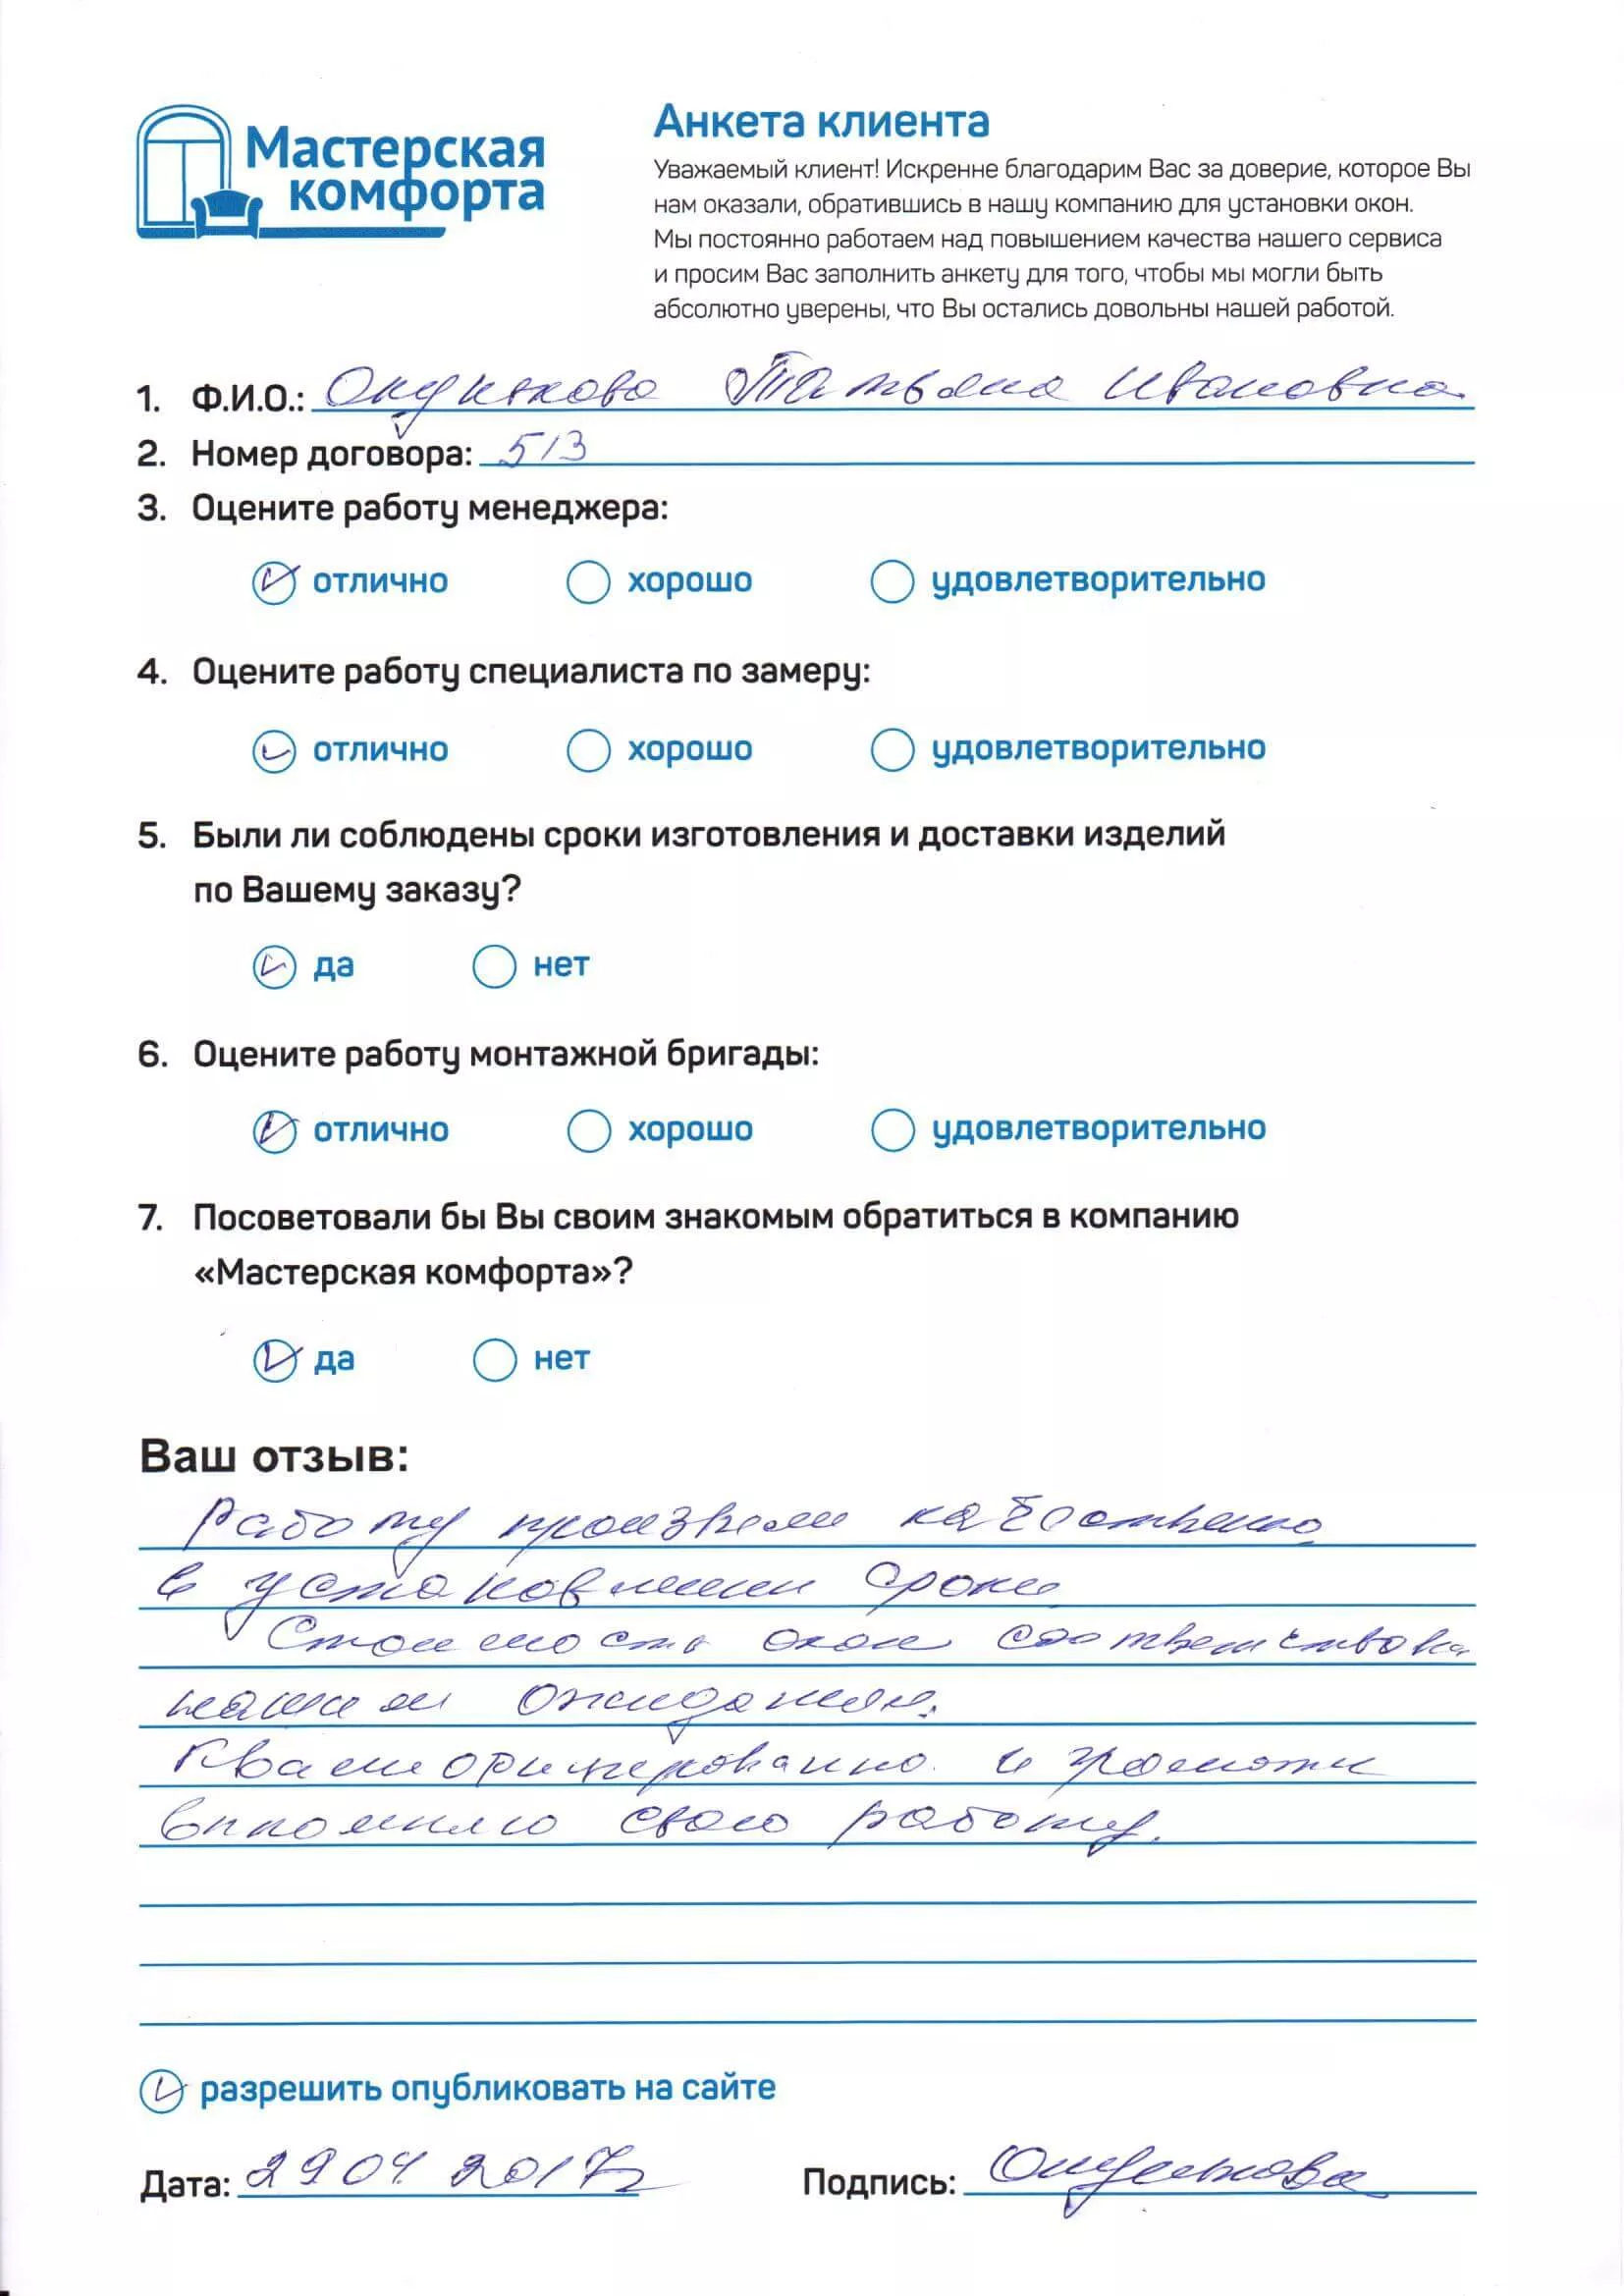 Мастерская
комфорта
Анкета клиента
Уважаемый клиент! Искренне благодарим Вас за доверие, которое Вы
нам оказали, обратившись в нашу компанию для установки окон.
Мы постоянно работаем над повышением качества нашего сервиса
и просим Вас заполнить анкету для того, чтобы мы могли быть
абсолютно уверены, что Вы остались довольны нашей работой.
1. Ф.И.О.: Татьяна Ивановна
2. Номер договора: 513
3. Оцените работу менеджера:
отлично хорошо удовлетворительно
4. Оцените работу специалиста по замеру:
отлично хорошо удовлетворительно
5. Были ли соблюдены сроки изготовления и доставки изделий
по Вашему заказу?
да нет
6. Оцените работу монтажной бригады:
отлично хорошо удовлетворительно
7. Посоветовали бы Вы своим знакомым обратиться в компанию
«Мастерская комфорта»?
да нет
Ваш отзыв:
Работу произвели качественно
в сроки
Стоимость окон
нашим ожиданиям.
Квалифицированно и
свою работу.
разрешить опубликовать на сайте
Дата: 29 04. 2017г
Подпись: